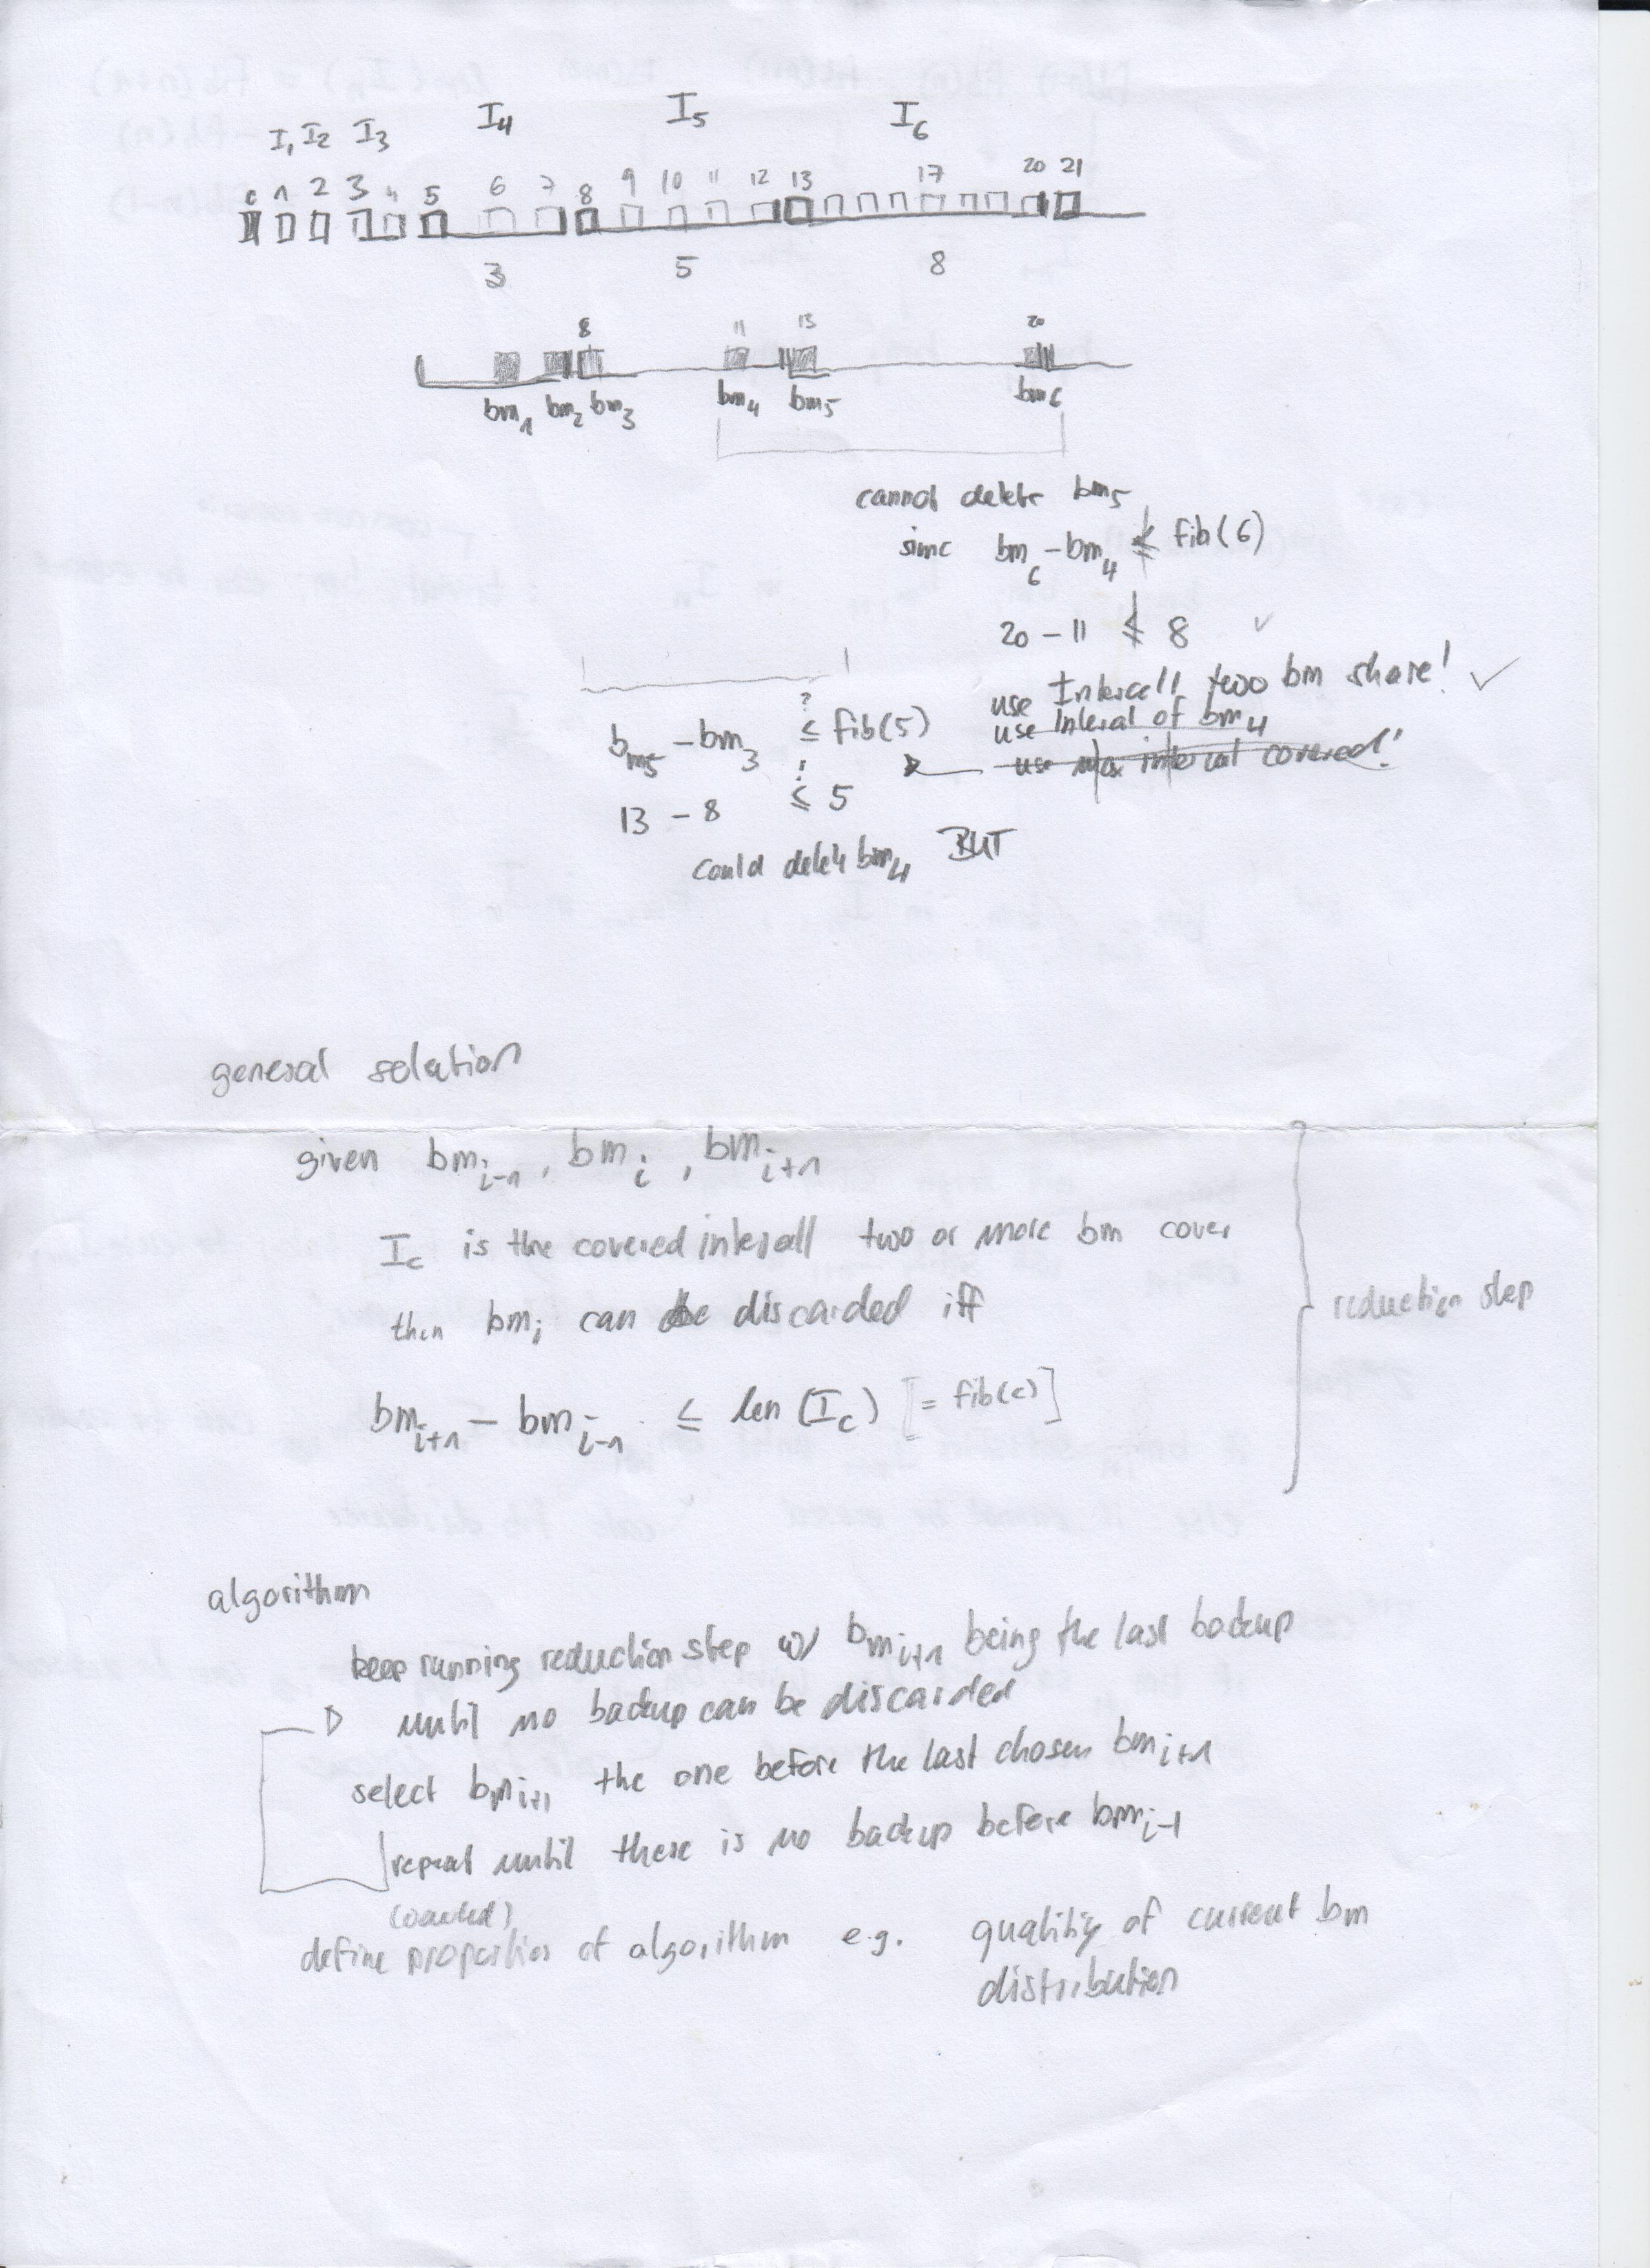 I₁ I₂ I₃ I₄ I₅ I₆
0 1 2 3 4 5 6 7 8 9 10 11 12 13 17 20 21
3 5 8
8 11 13 20
bm₁ bm₂ bm₃ bm₄ bm₅ bm₆
cannot delete bm₅
since bm₆ - bm₄ ≰ fib(6)
20 - 11 ≰ 8 ✓
use Intervall two bm share! ✓
use Interal of bm₄
use max interval covered!
bm₅ - bm₃ ≤? fib(5)
13 - 8 ≤! 5
could delete bm₄ BUT
general solution
given bmᵢ₋₁, bmᵢ, bmᵢ₊₁
I_c is the covered intervall two or more bm cover
then bmᵢ can be discarded iff
bmᵢ₊₁ - bmᵢ₋₁ ≤ len (I_c) [= fib(c)]
reduction step
algorithm
keep running reduction step w/ bmᵢ₊₁ being the last backup
until no backup can be discarded
select bmᵢ₊₁ the one before the last chosen bmᵢ₊₁
repeat until there is no backup before bmᵢ₋₁
(wanted)
define properties of algorithm e.g. quality of current bm
distribution